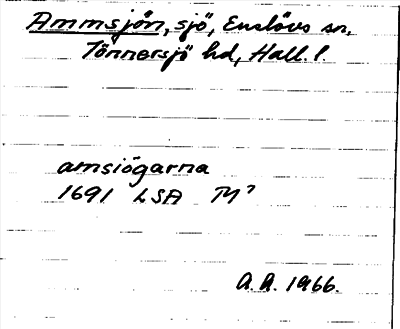 Ammsjön, sjö, Enslövs sn,
Tönnersjö hd, Hall. l.
amsiögarna
1691 LSA M⁷
A.A. 1966.